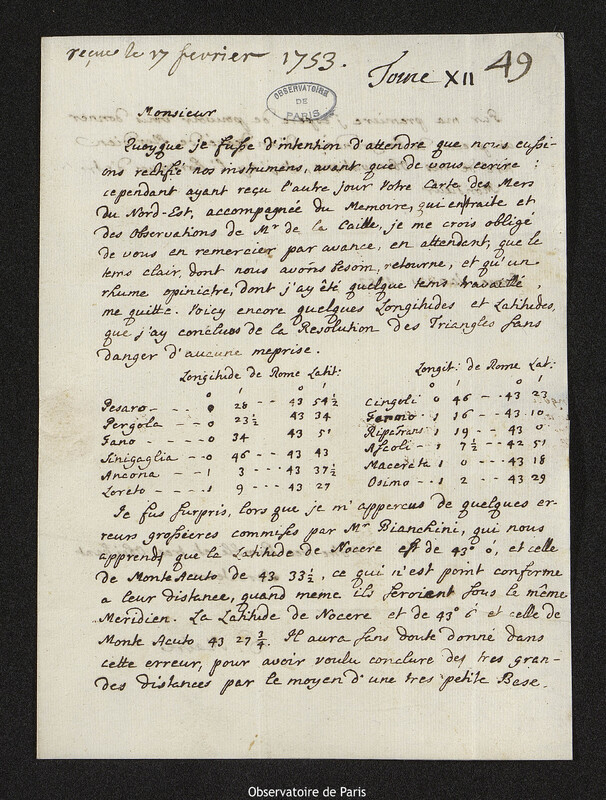 reçue le 17 fevrier 1753.
Tome XII 49
OBSERVATOIRE
DE
PARIS
Monsieur
Quoyque je fusse d'intention d'attendre que nous eussi-
ons rectifié nos instrumens, avant que de vous ecrire;
cependant ayant reçu l'autre jour Votre Carte des Mers
du Nord-Est, accompagnée du Memoire, qui en traite et
des Observations de Mr de la Caille, je me crois obligé
de vous en remercier par avance, en attendent, que le
tems clair, dont nous avons besoin, retourne, et qu'un
rhume opiniatre, dont j'ay êté quelque tems travaillé,
me quitte. Voicy encore quelques Longitudes et Latitudes,
que j'ay conclues de la Resolution des Triangles sans
danger d'aucune meprise.
Longitude de Rome Latit:
Pesaro 0 28 43 54½
Pergola 0 23½ 43 34
Fano 0 34 43 51
Sinigaglia 0 46 43 43
Ancona 1 3 43 37½
Loreto 1 9 43 27
Longit: de Rome Lat:
Cingoli 0 46 43 23
Fermo 1 16 43 10
RipaTrans: 1 19 43 0
Ascoli 1 7½ 42 51
Macerata 1 0 43 18
Osimo 1 2 43 29
Je fus surpris, lors que je m'appercus de quelques er-
reurs grossieres commises par Mr Bianchini, qui nous
apprend que la Latitude de Nocere est de 43° 0', et celle
de Monte Acuto de 43 33½, ce qui n'est point conforme
a leur distance, quand meme ils seroient sous le même
Meridien. La Latitude de Nocere et de 43° 6' et celle de
Monte Acuto 43 27¾. Il aura sans doute donné dans
cette erreur, pour avoir voulu conclure des tres gran-
des distances par le moyen d'une tres petite Base.
Observatoire de Paris